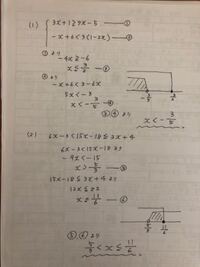 (1) { 3x+1≧7x-5 —①
-x+6<3(1-2x) —②
①より
-4x≧-6
x≦3/2 —③
②より
-x+6<3-6x
5x<-3
x<-3/5 —④
-3/5 3/2
③④より
x<-3/5
(2) 6x-3<15x-18≦3x+4
6x-3<15x-18より
-9x<-15
x>5/3 —⑤
15x-18≦3x+4より
12x≦22
x≦11/6 —⑥
5/3 11/6
⑤⑥より
5/3<x≦11/6